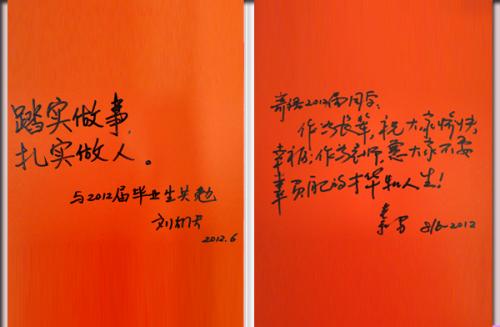 踏实做事,
扎实做人。
与2012届毕业生共勉
2012.6
寄语2012届同学:
作为长辈,祝大家愉快,
幸福;作为老师,愿大家不要
辜负自己的才华和人生!
8/6-2012